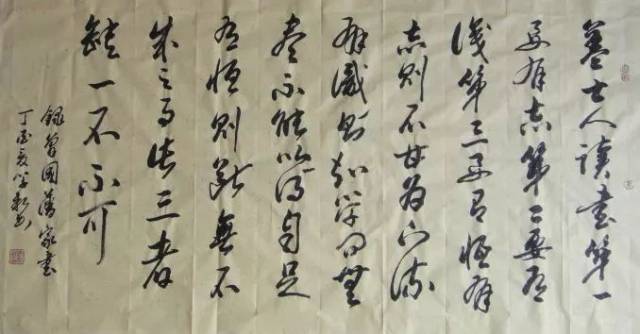 蓋士人讀書第一
要有志第二要有
識第三要有恒有
志則不甘為下流
有識則知學問無
盡不能以得自足
有恒則斷無不
成之事此三者
缺一不不可
錄曾國藩家書
丁酉